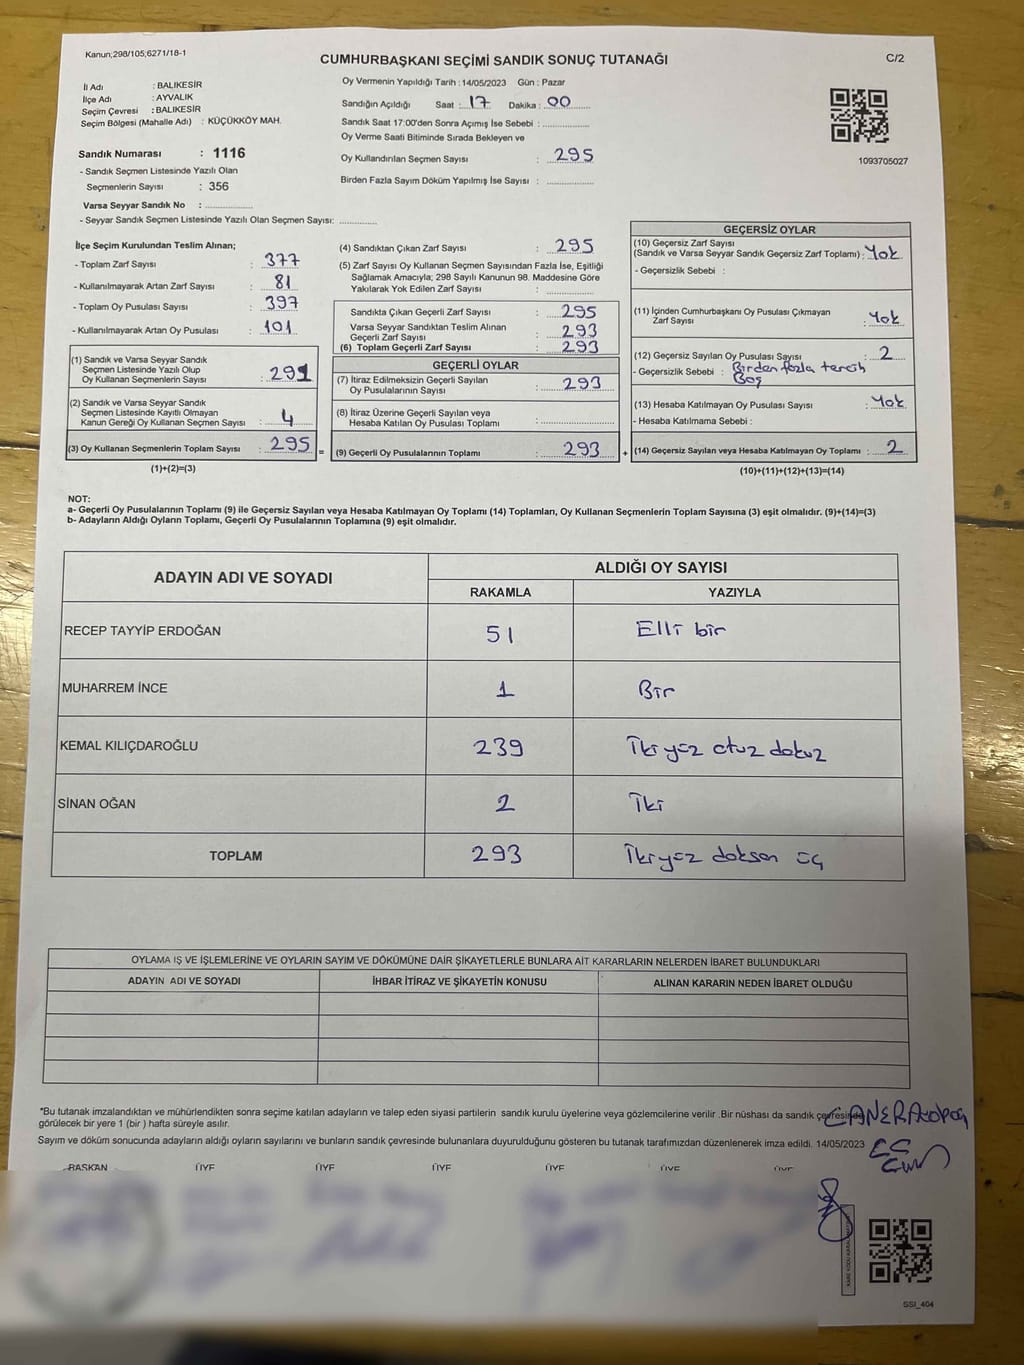 Kanun;298/105,6271/18-1
CUMHURBAŞKANI SEÇİMİ SANDIK SONUÇ TUTANAĞI
C/2
İl Adı : BALIKESİR
İlçe Adı : AYVALIK
Seçim Çevresi : BALIKESİR
Seçim Bölgesi (Mahalle Adı) : KÜÇÜKKÖY MAH.
Sandık Numarası : 1116
- Sandık Seçmen Listesinde Yazılı Olan
Seçmenlerin Sayısı : 356
Varsa Seyyar Sandık No :
- Seyyar Sandık Seçmen Listesinde Yazılı Olan Seçmen Sayısı:
Oy Vermenin Yapıldığı Tarih : 14/05/2023 Gün : Pazar
Sandığın Açıldığı Saat : 17 Dakika : 00
Sandık Saat 17:00'den Sonra Açımış İse Sebebi :
Oy Verme Saati Bitiminde Sırada Bekleyen ve
Oy Kullandırılan Seçmen Sayısı : 295
Birden Fazla Sayım Döküm Yapılmış İse Sayısı :
1093705027
İlçe Seçim Kurulundan Teslim Alınan;
- Toplam Zarf Sayısı : 377
- Kullanılmayarak Artan Zarf Sayısı : 81
- Toplam Oy Pusulası Sayısı : 397
- Kullanılmayarak Artan Oy Pusulası : 101
(1) Sandık ve Varsa Seyyar Sandık
Seçmen Listesinde Yazılı Olup
Oy Kullanan Seçmenlerin Sayısı : 291
(2) Sandık ve Varsa Seyyar Sandık
Seçmen Listesinde Kayıtlı Olmayan
Kanun Gereği Oy Kullanan Seçmen Sayısı : 4
(3) Oy Kullanan Seçmenlerin Toplam Sayısı : 295 =
(1)+(2)=(3)
(4) Sandıktan Çıkan Zarf Sayısı : 295
(5) Zarf Sayısı Oy Kullanan Seçmen Sayısından Fazla İse, Eşitliği
Sağlamak Amacıyla; 298 Sayılı Kanunun 98. Maddesine Göre
Yakılarak Yok Edilen Zarf Sayısı :
Sandıkta Çıkan Geçerli Zarf Sayısı : 295
Varsa Seyyar Sandıktan Teslim Alınan
Geçerli Zarf Sayısı : 293
(6) Toplam Geçerli Zarf Sayısı : 293
GEÇERLİ OYLAR
(7) İtiraz Edilmeksizin Geçerli Sayılan
Oy Pusulalarının Sayısı : 293
(8) İtiraz Üzerine Geçerli Sayılan veya
Hesaba Katılan Oy Pusulası Toplamı :
(9) Geçerli Oy Pusulalarının Toplamı : 293 +
GEÇERSİZ OYLAR
(10) Geçersiz Zarf Sayısı
(Sandık ve Varsa Seyyar Sandık Geçersiz Zarf Toplamı) : Yok
- Geçersizlik Sebebi :
(11) İçinden Cumhurbaşkanı Oy Pusulası Çıkmayan
Zarf Sayısı : Yok
(12) Geçersiz Sayılan Oy Pusulası Sayısı : 2
- Geçersizlik Sebebi : Birden fazla tercih
Boş
(13) Hesaba Katılmayan Oy Pusulası Sayısı : Yok
- Hesaba Katılmama Sebebi :
(14) Geçersiz Sayılan veya Hesaba Katılmayan Oy Toplamı : 2
(10)+(11)+(12)+(13)=(14)
NOT:
a- Geçerli Oy Pusulalarının Toplamı (9) ile Geçersiz Sayılan veya Hesaba Katılmayan Oy Toplamı (14) Toplamları, Oy Kullanan Seçmenlerin Toplam Sayısına (3) eşit olmalıdır. (9)+(14)=(3)
b- Adayların Aldığı Oyların Toplamı, Geçerli Oy Pusulalarının Toplamına (9) eşit olmalıdır.
ADAYIN ADI VE SOYADI
ALDIĞI OY SAYISI
RAKAMLA YAZIYLA
RECEP TAYYİP ERDOĞAN 51 Elli bir
MUHARREM İNCE 1 Bir
KEMAL KILIÇDAROĞLU 239 İkiyüz otuz dokuz
SİNAN OĞAN 2 İki
TOPLAM 293 İkiyüz doksan üç
OYLAMA İŞ VE İŞLEMLERİNE VE OYLARIN SAYIM VE DÖKÜMÜNE DAİR ŞİKAYETLERLE BUNLARA AİT KARARLARIN NELERDEN İBARET BULUNDUKLARI
ADAYIN ADI VE SOYADI İHBAR İTİRAZ VE ŞİKAYETİN KONUSU ALINAN KARARIN NEDEN İBARET OLDUĞU
*Bu tutanak imzalandıktan ve mühürlendikten sonra seçime katılan adayların ve talep eden siyasi partilerin sandık kurulu üyelerine veya gözlemcilerine verilir .Bir nüshası da sandık çevresinde
görülecek bir yere 1 (bir ) hafta süreyle asılır.
Sayım ve döküm sonucunda adayların aldığı oyların sayılarını ve bunların sandık çevresinde bulunanlara duyurulduğunu gösteren bu tutanak tarafımızdan düzenlenerek imza edildi. 14/05/2023
BAŞKAN ÜYE ÜYE ÜYE ÜYE ÜYE ÜYE
SSI_404